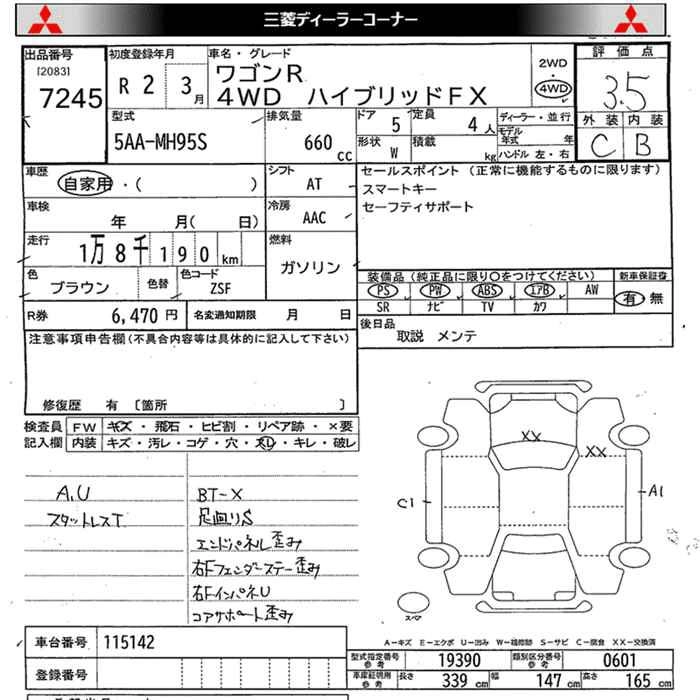 三菱ディーラーコーナー
出品番号
[2083]
7245
初度登録年月
R 2 3 月
車名・グレード
ワゴンR
4WD ハイブリッドFX
2WD
4WD
評価点
3.5
外装 内装
C B
型式
5AA-MH95S
排気量
660 cc
ドア 5
定員 4 人
形状 W
積載 kg
ディーラー・並行
モデル年式 年
ハンドル 左・右
車歴
自家用・( )
シフト
AT
車検
年 月( 日)
冷房
AAC
セールスポイント (正常に機能するものに限ります)
スマートキー
セーフティサポート
走行
1万8千190 km
燃料
ガソリン
色
ブラウン
色替
色コード
ZSF
装備品 (純正品に限り○をつけてください)
PS PW ABS エアB AW
SR ナビ TV カワ
新車保証書
有・無
R券 6,470 円
名変通知期限 月 日
後日品
取説 メンテ
注意事項申告欄 (不具合内容等は具体的に記入して下さい)
修復歴 有 [箇所 ]
検査員記入欄
FW キズ・飛石・ヒビ割・リペア跡・×要
内装 キズ・汚レ・コゲ・穴・スレ・キレ・破レ
A,U
スタットレスT
BT-X
足廻りS
エンドパネル歪み
右Fフェンダーステー歪み
右FインパネU
コアサポート歪み
XX
XX
C1
A1
スペア
車台番号 115142
登録番号
A-キズ E-エクボ U-凹み W-補修跡 S-サビ C-腐食 XX-交換済
型式指定番号 参考 19390
類別区分番号 参考 0601
車庫証明用 参考 長さ 339 cm 幅 147 cm 高さ 165 cm